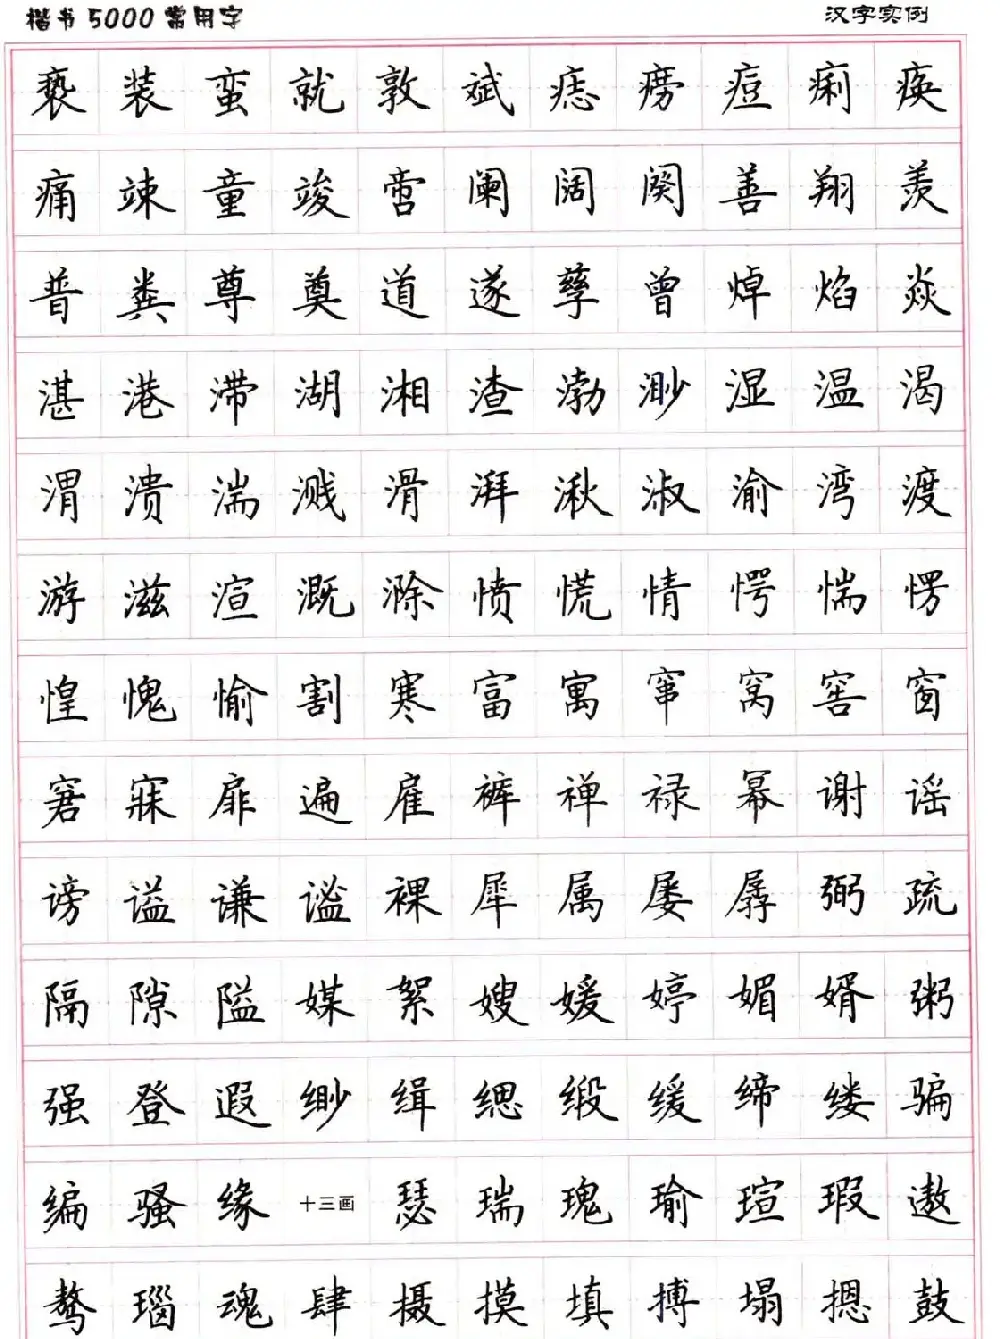 楷书5000常用字 汉字实例
亵 装 蛮 就 敦 斌 痣 痨 痘 痢 痪
痛 竦 童 竣 啻 阑 阔 阕 善 翔 羡
普 粪 尊 奠 道 遂 孳 曾 焯 焰 焱
湛 港 滞 湖 湘 渣 渤 渺 湿 温 渴
渭 溃 湍 溅 滑 湃 湫 淑 渝 湾 渡
游 滋 渲 溉 滁 愤 慌 情 愕 惴 愣
惶 愧 愉 割 寒 富 寓 窜 窝 窖 窗
窘 寐 扉 遍 雇 裤 禅 禄 幂 谢 谣
谤 谥 谦 谧 裸 犀 属 屡 孱 弼 疏
隔 隙 隘 媒 絮 嫂 媛 婷 媚 婿 粥
强 登 遐 缈 缉 缌 缎 缓 缔 缕 骗
编 骚 缘 十三画 瑟 瑞 瑰 瑜 瑄 瑕 遨
骜 瑙 魂 肆 摄 摸 填 搏 塌 摁 鼓